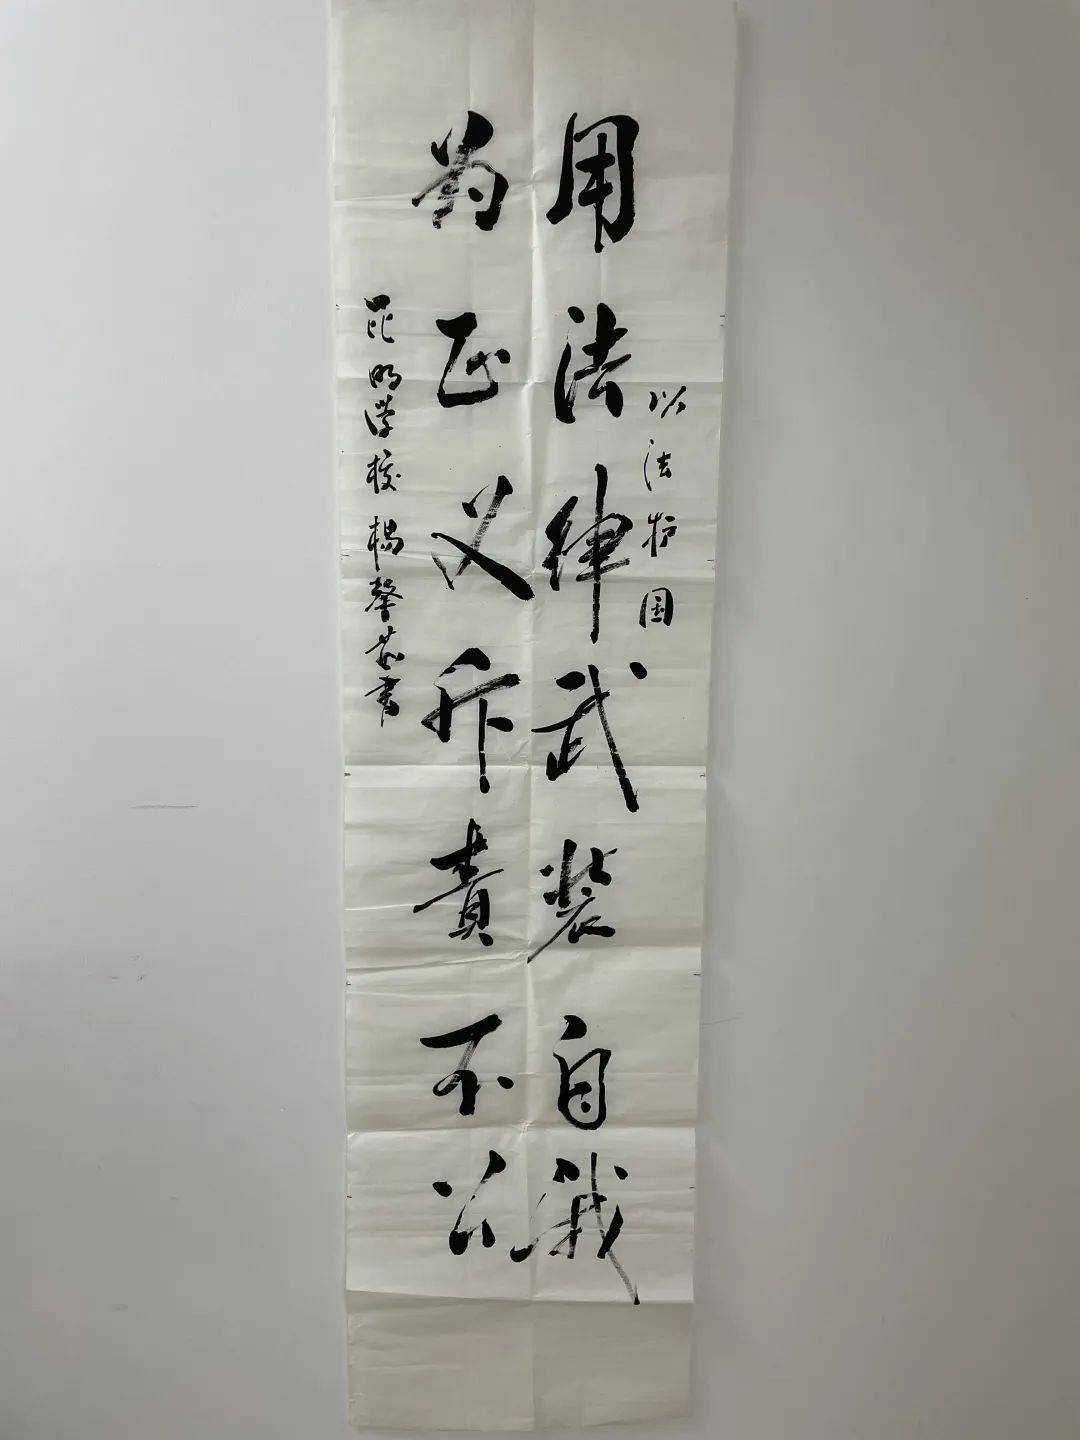 以法护国
用法律武装自我
为正义斥责不公
昆明学校 杨馨书